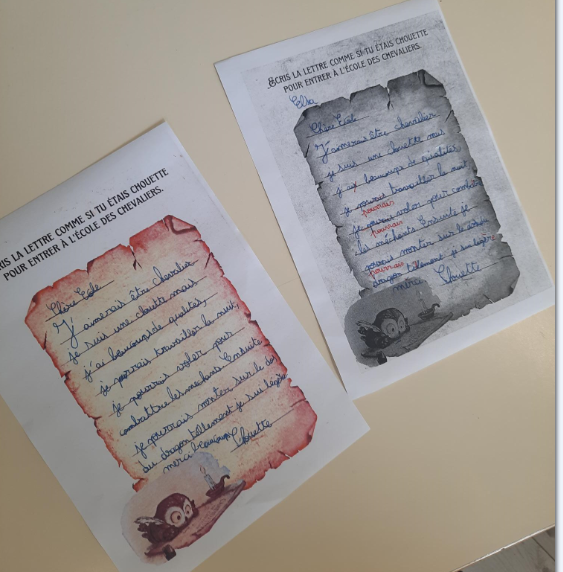 ÉCRIS LA LETTRE COMME SI TU ÉTAIS CHOUETTE
POUR ENTRER À L'ÉCOLE DES CHEVALIERS.
Elsa
Cher École
J'aimerais être chevalier
je suis une chouette mais
j'ai beaucoup de qualiter
je pourais travailler la nuit
pourrais
je pourais voler pour combattre
pourrais
les méchants Ensuite je
pourais monter sur le dos
pourrais
dragon tellement je suis légère
merci Chouette
RIS LA LETTRE COMME SI TU ÉTAIS CHOUETTE
POUR ENTRER À L'ÉCOLE DES CHEVALIERS.
Cher École
J'aimerais être chevalier
je suis une chouette mais
j'ai beaucoup de qualiter,
je pourrais travailler la nuit,
je pourrais voler pour
combattre les méchants Ensuite
je pourrais monter sur le dos
du dragon tellement je sui légère
merci beaucoup Chouette